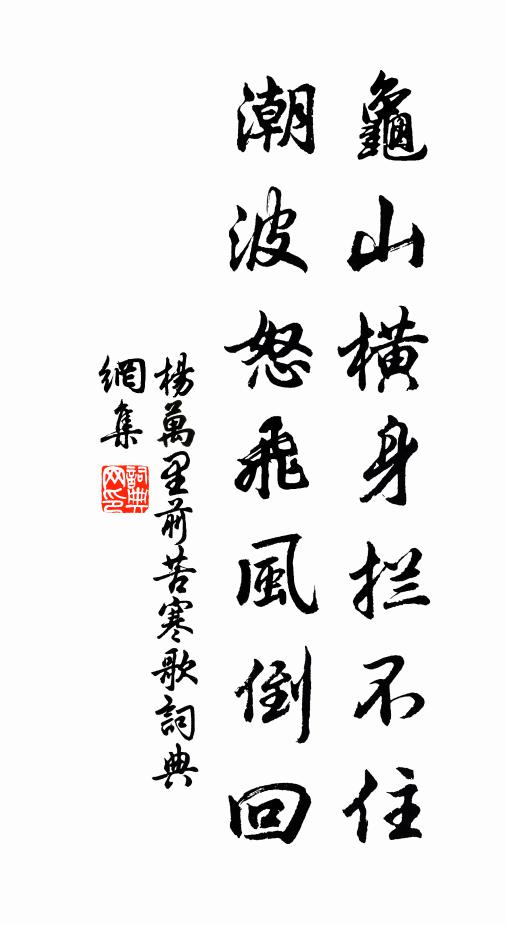 龜山橫身拦不住
潮波怒飛風倒回
楊萬里前苦寒歌詞典
網集
詞典网印